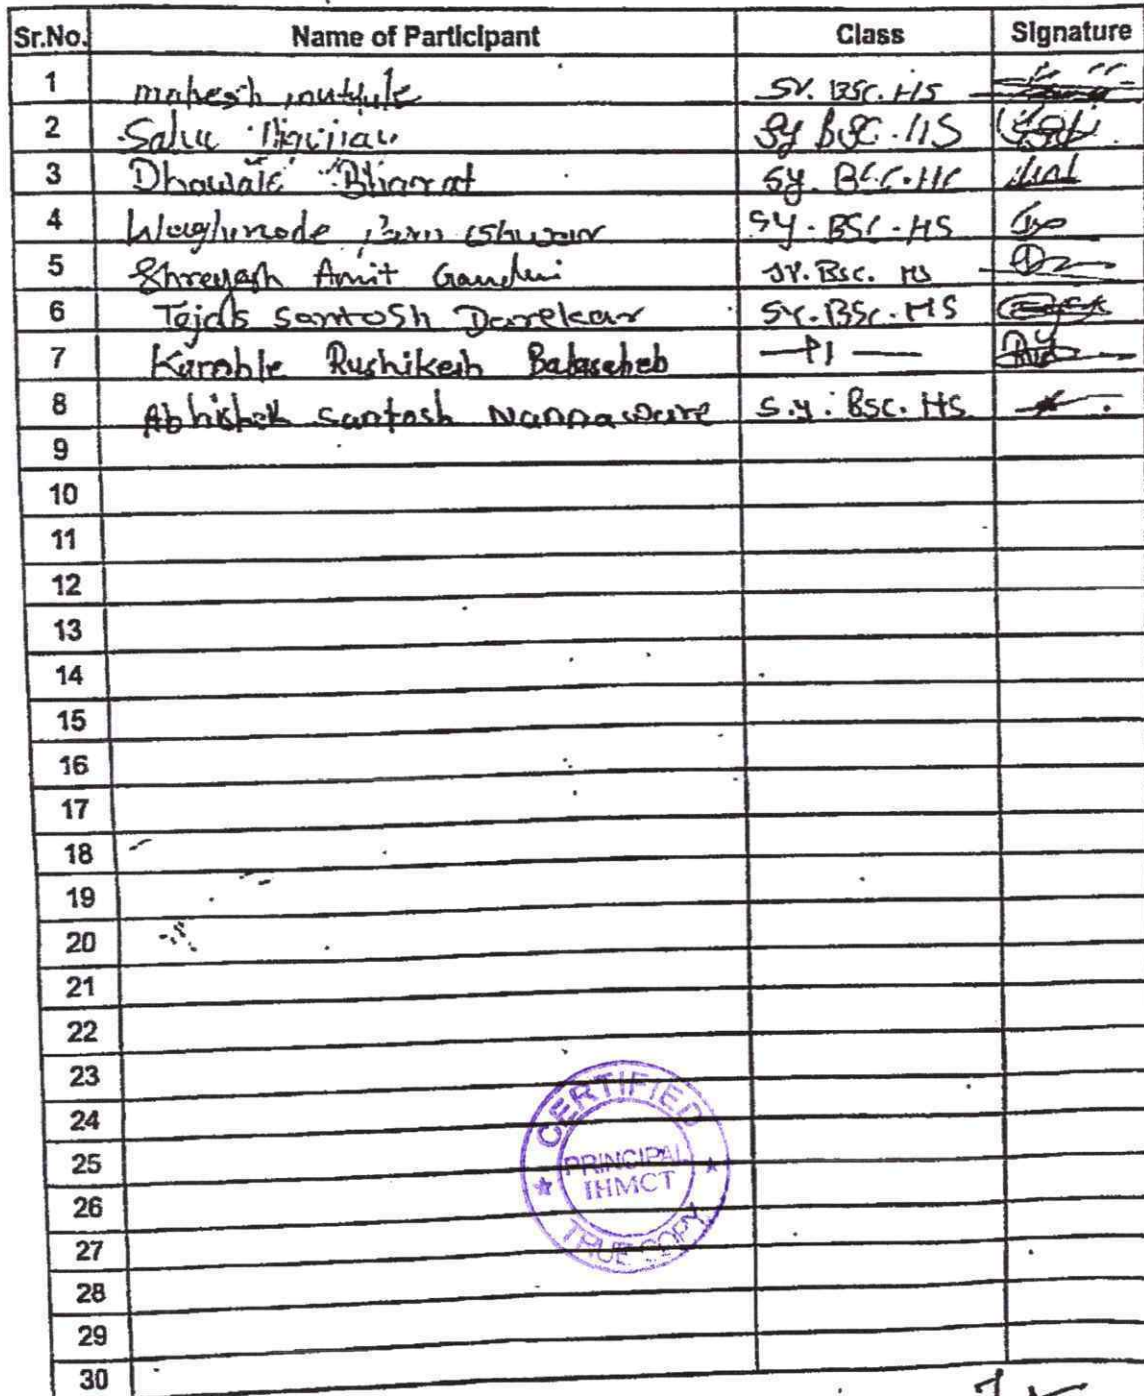 Sr.No. Name of Participant Class Signature
1 mahesh SY. BSC. HS
2 SY BSC. HS
3 Dhawale Bharat SY. BSC. HS
4 SY. BSC. HS
5 Shreyash Amit Gandhi SY. BSC. HS
6 Tejas Santosh Darekar SY. BSC. HS
7 Kamble Rushikesh Balasaheb
8 Abhishek Santosh Nannaware S.Y. BSC. HS.
9
10
11
12
13
14
15
16
17
18
19
20
21
22
23
24
25
26
27
28
29
30
CERTIFIED
PRINCIPAL
IHMCT
TRUE COPY